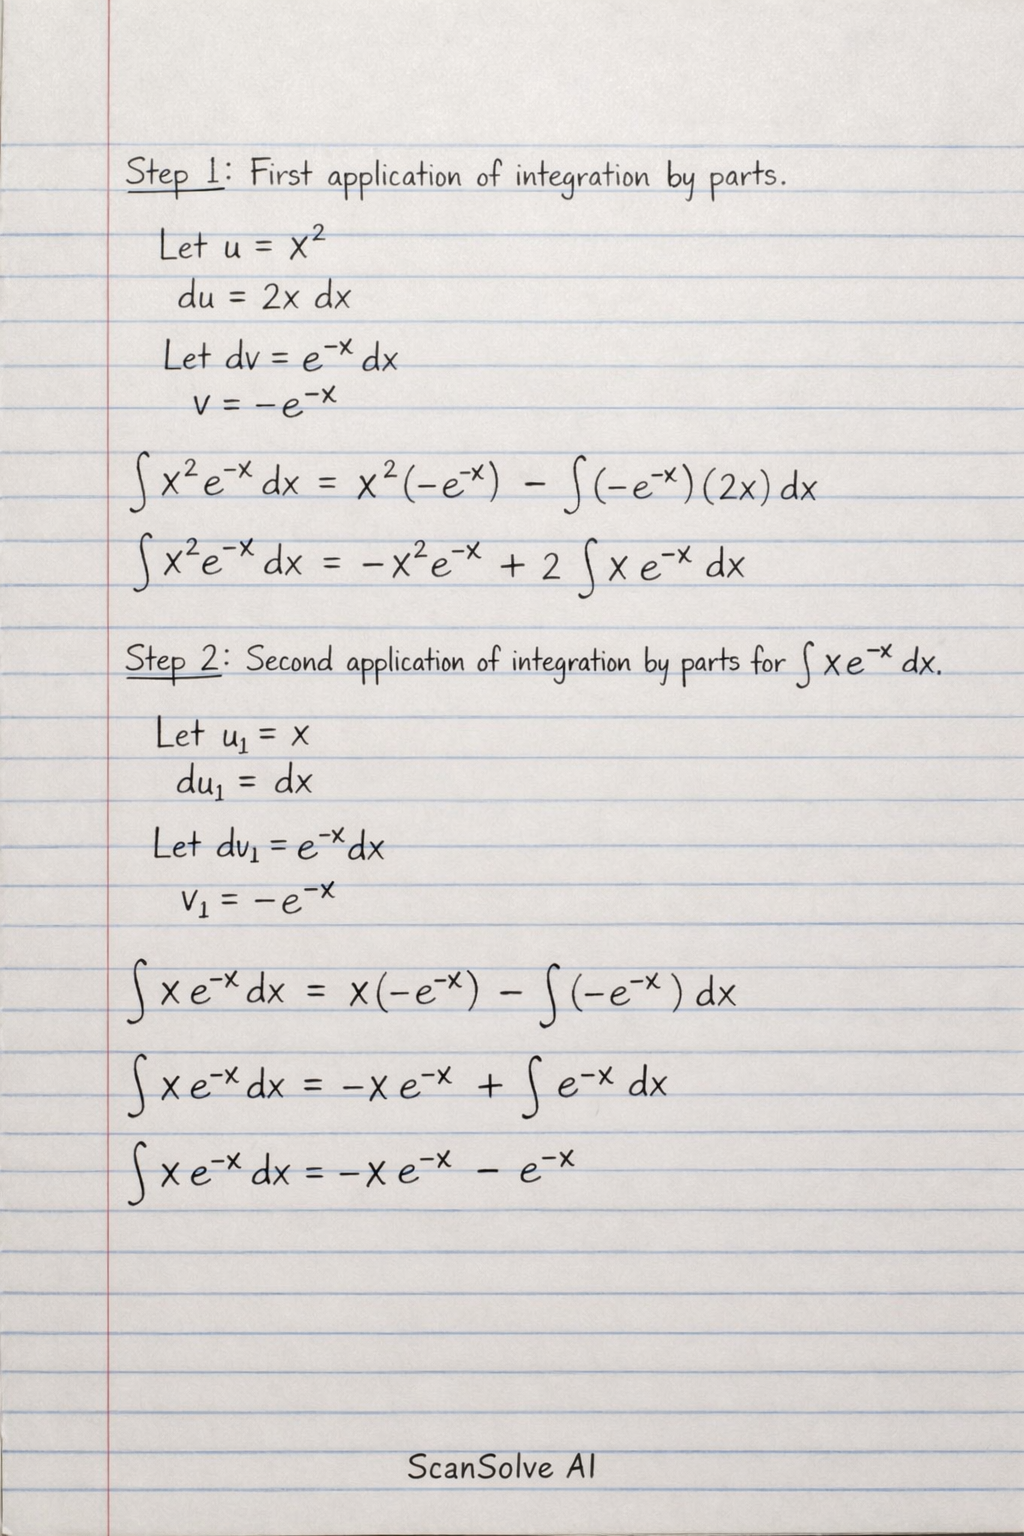 Step 1: First application of integration by parts.
Let u = x²
du = 2x dx
Let dv = e⁻ˣ dx
v = −e⁻ˣ
∫ x² e⁻ˣ dx = x²(−e⁻ˣ) − ∫(−e⁻ˣ)(2x) dx
∫ x² e⁻ˣ dx = −x² e⁻ˣ + 2 ∫ x e⁻ˣ dx
Step 2: Second application of integration by parts for ∫ x e⁻ˣ dx.
Let u₁ = x
du₁ = dx
Let dv₁ = e⁻ˣ dx
v₁ = −e⁻ˣ
∫ x e⁻ˣ dx = x(−e⁻ˣ) − ∫(−e⁻ˣ) dx
∫ x e⁻ˣ dx = −x e⁻ˣ + ∫ e⁻ˣ dx
∫ x e⁻ˣ dx = −x e⁻ˣ − e⁻ˣ
ScanSolve AI